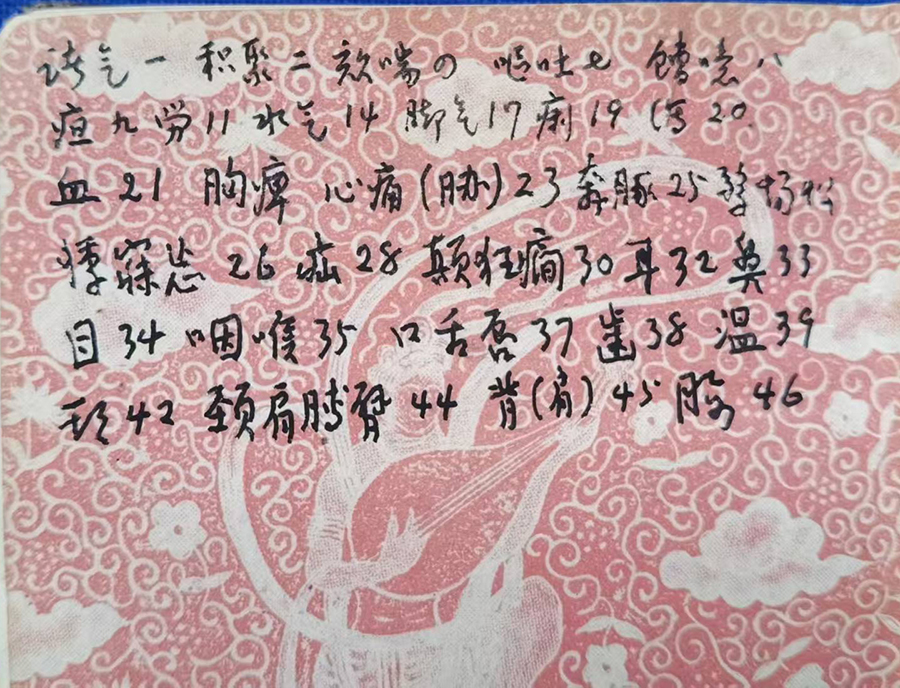 诸气一 积聚二 咳喘四 呕吐七 噫八
疸九 劳11 水气14 脚气17 痢19 20
血21 胸痹 心痛(胁)23 奔豚25
悸 26 疝28 颠狂痫30 耳32 鼻33
目34 咽喉35 口舌唇37 齿38 温39
42 颈肩膊臂44 背(肩)45 胸46